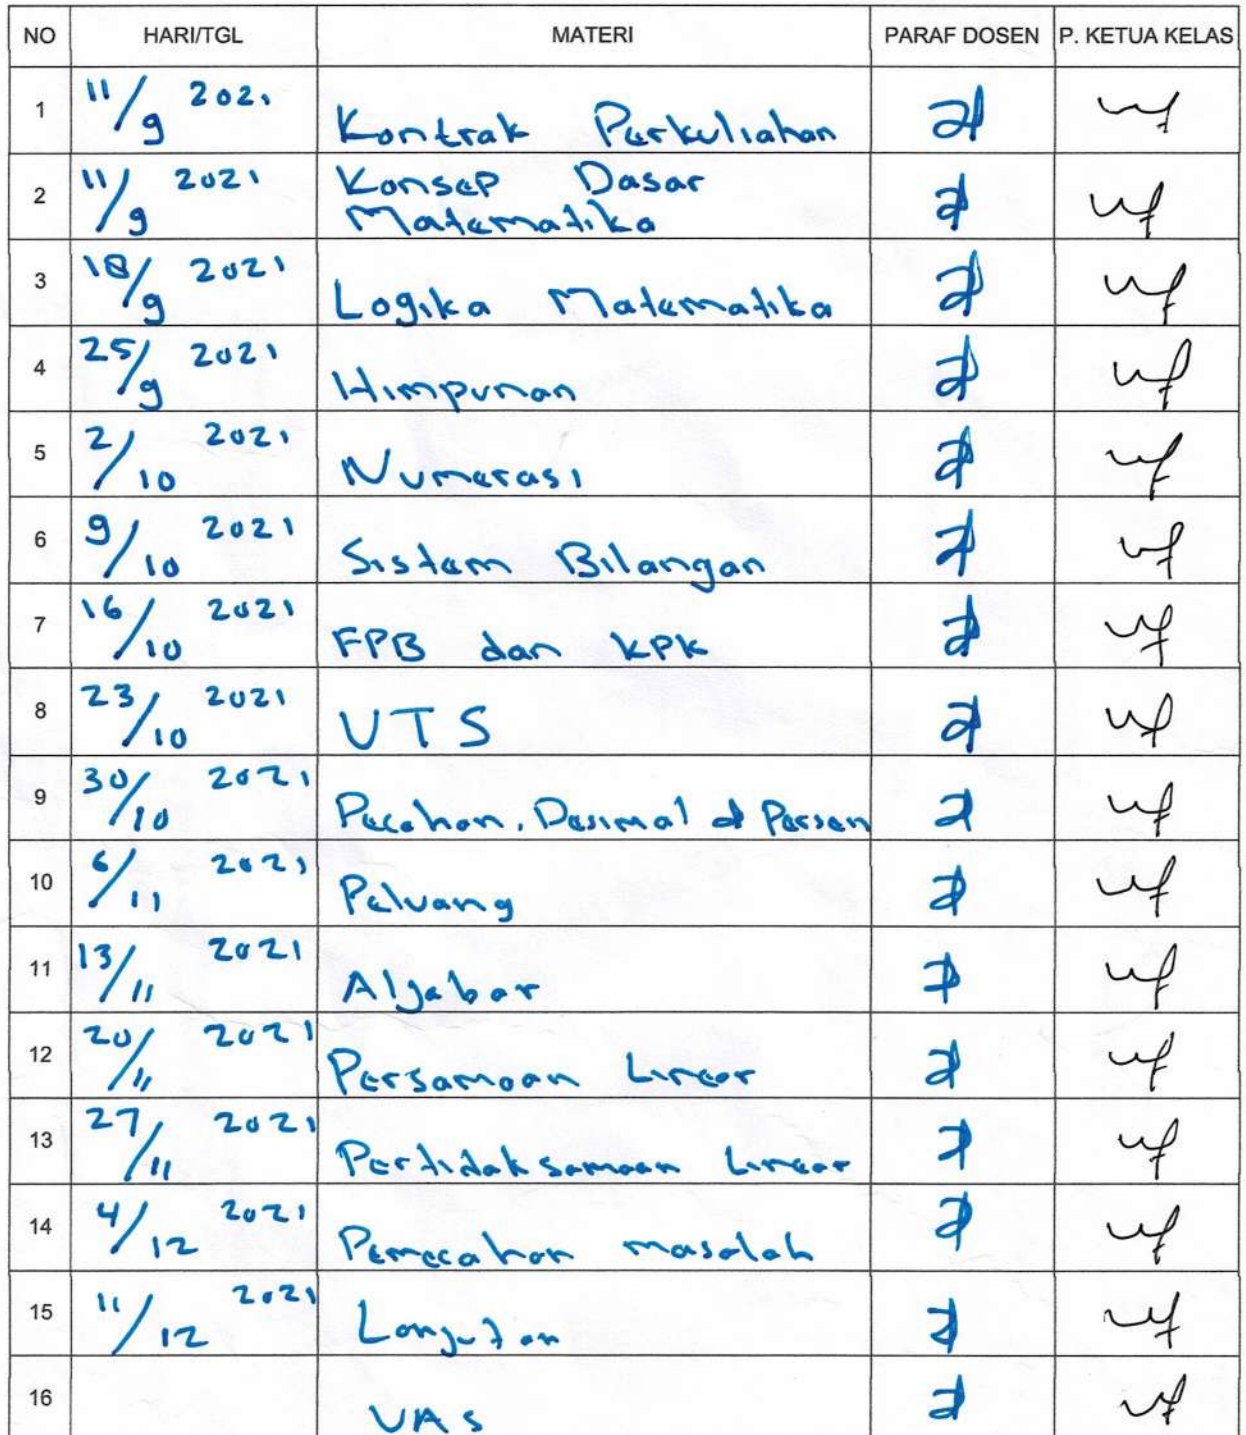 NO HARI/TGL MATERI PARAF DOSEN P. KETUA KELAS
1 11/9 2021 Kontrak Perkuliahan
2 11/9 2021 Konsep Dasar
Matematika
3 18/9 2021 Logika Matematika
4 25/9 2021 Himpunan
5 2/10 2021 Numerasi
6 9/10 2021 Sistem Bilangan
7 16/10 2021 FPB dan KPK
8 23/10 2021 UTS
9 30/10 2021 Pecahan, Desimal & Persen
10 6/11 2021 Peluang
11 13/11 2021 Aljabar
12 20/11 2021 Persamaan Linear
13 27/11 2021 Pertidaksamaan Linear
14 4/12 2021 Pemecahan masalah
15 11/12 2021 Lanjutan
16 UAS